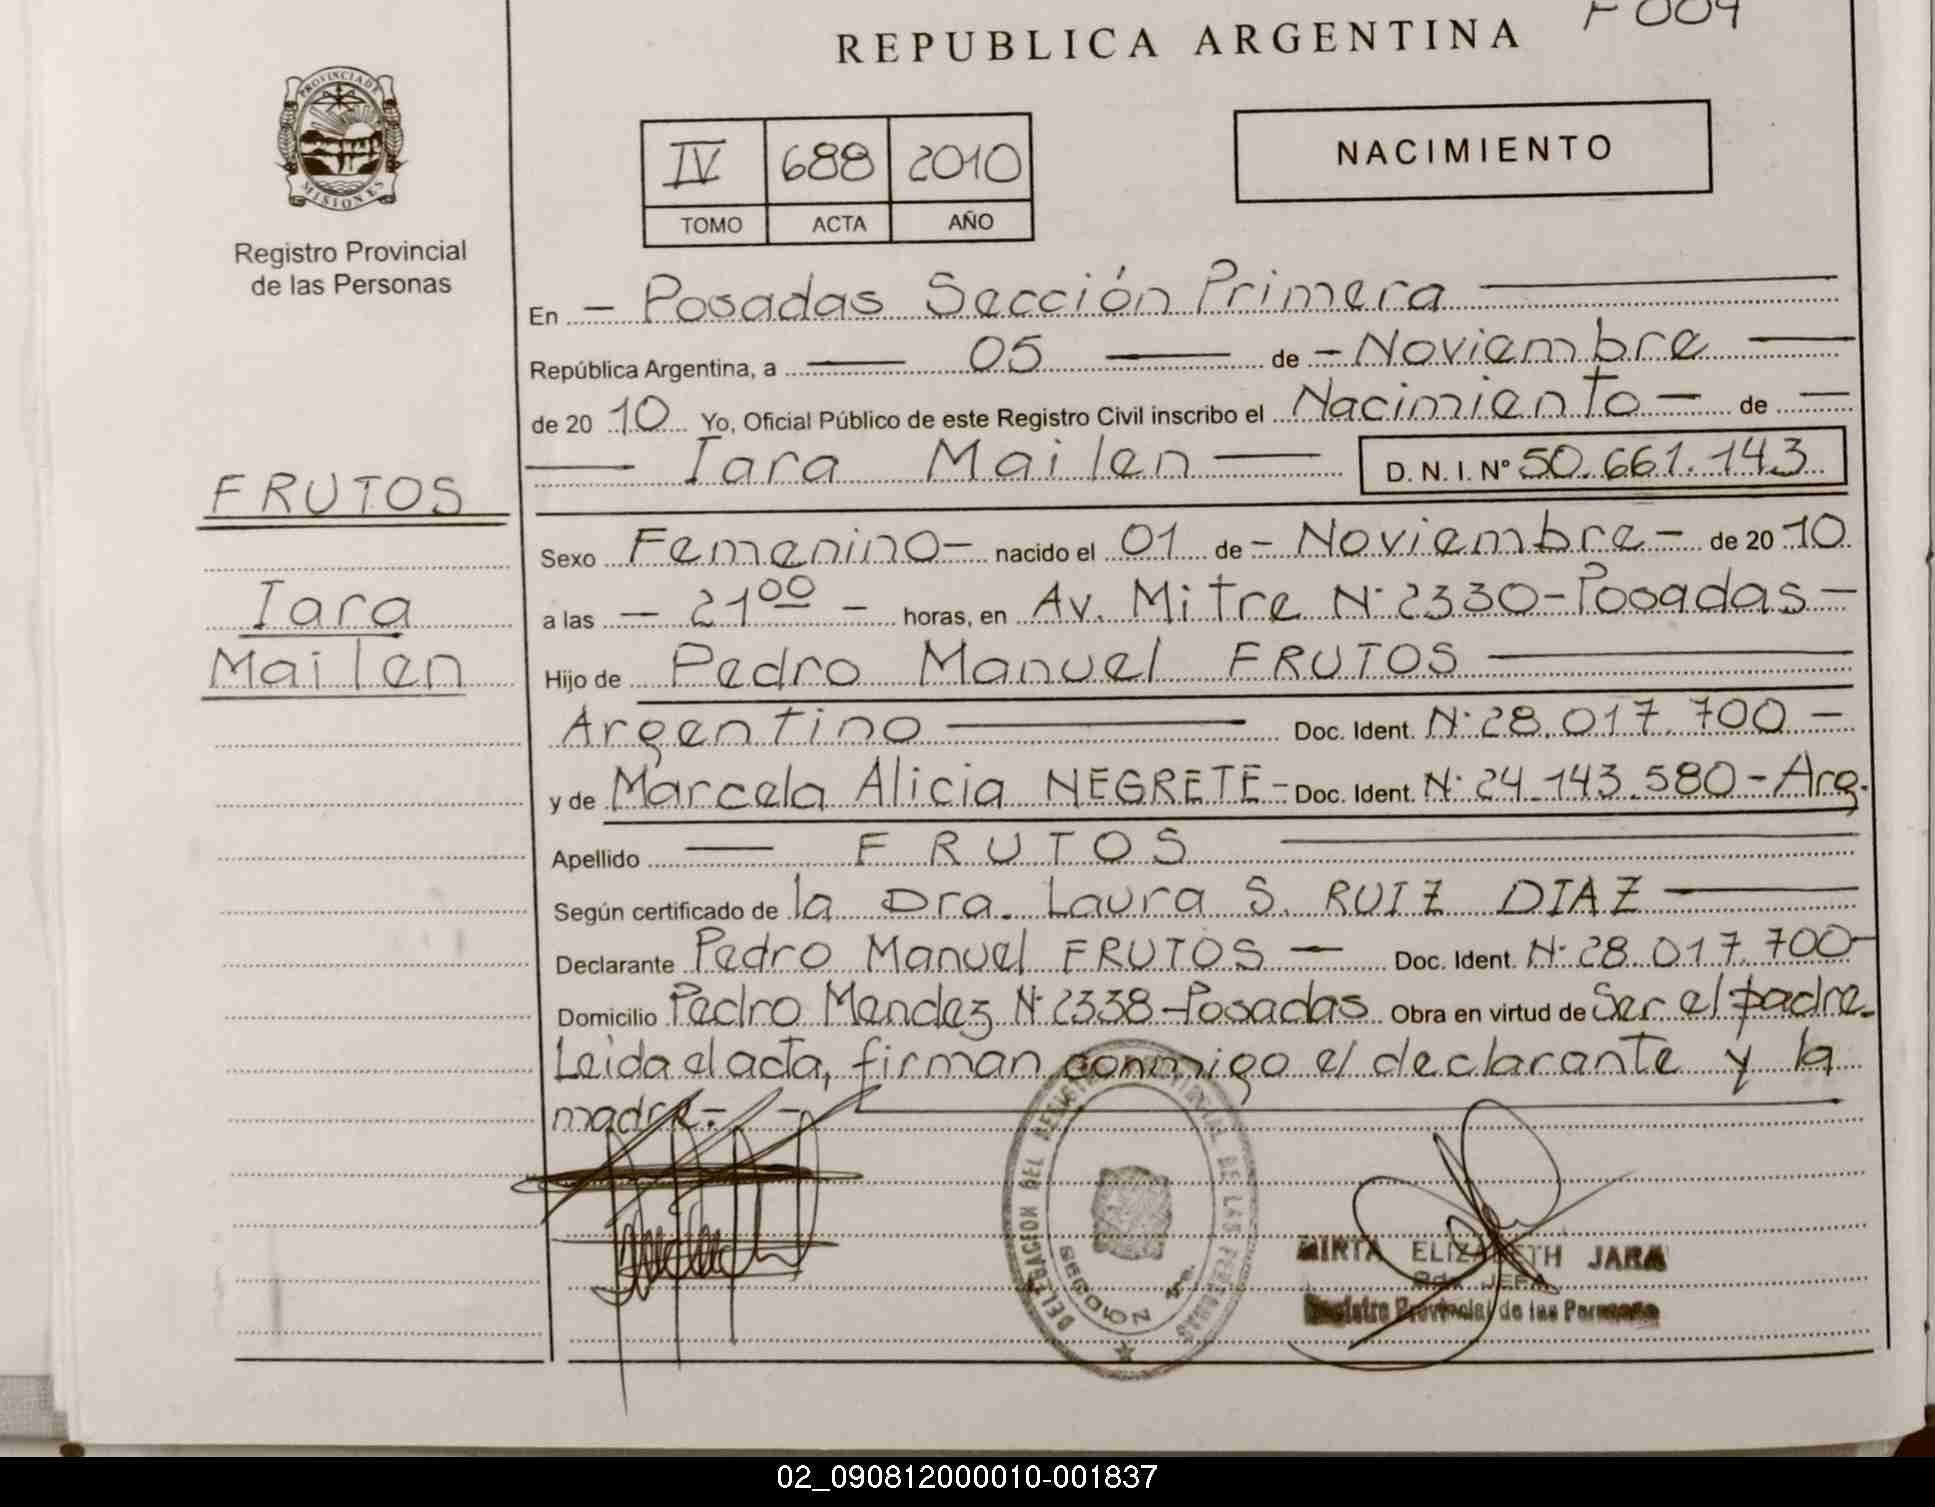 REPUBLICA ARGENTINA
PROVINCIA DE
MISIONES
Registro Provincial
de las Personas
IV 688 2010
TOMO ACTA AÑO
NACIMIENTO
En - Posadas Sección Primera
República Argentina, a 05 de - Noviembre
de 20 10 Yo, Oficial Público de este Registro Civil inscribo el Nacimiento - de -
Iara Mailen D. N. I. Nº 50.661.143
FRUTOS
Iara
Mailen
Sexo Femenino - nacido el 01 de - Noviembre - de 20 10
a las - 21 00 - horas, en Av. Mitre Nº 2330 - Posadas -
Hijo de Pedro Manuel FRUTOS
Argentino Doc. Ident. Nº 28.017.700 -
y de Marcela Alicia NEGRETE - Doc. Ident. Nº 24.143.580 - Arg.
Apellido FRUTOS
Según certificado de la Dra. Laura S. RUIZ DIAZ
Declarante Pedro Manuel FRUTOS - Doc. Ident. Nº 28.017.700 -
Domicilio Pedro Mendez Nº 2338 - Posadas Obra en virtud de Ser el padre.
Leida el acta, firman conmigo el declarante y la
madre.-
DELEGACION DEL REGISTRO PROVINCIAL DE LAS PERSONAS
SECCION
MIRTA ELIZABETH JARA
JEFA
Registro Provincial de las Personas
02_090812000010-001837